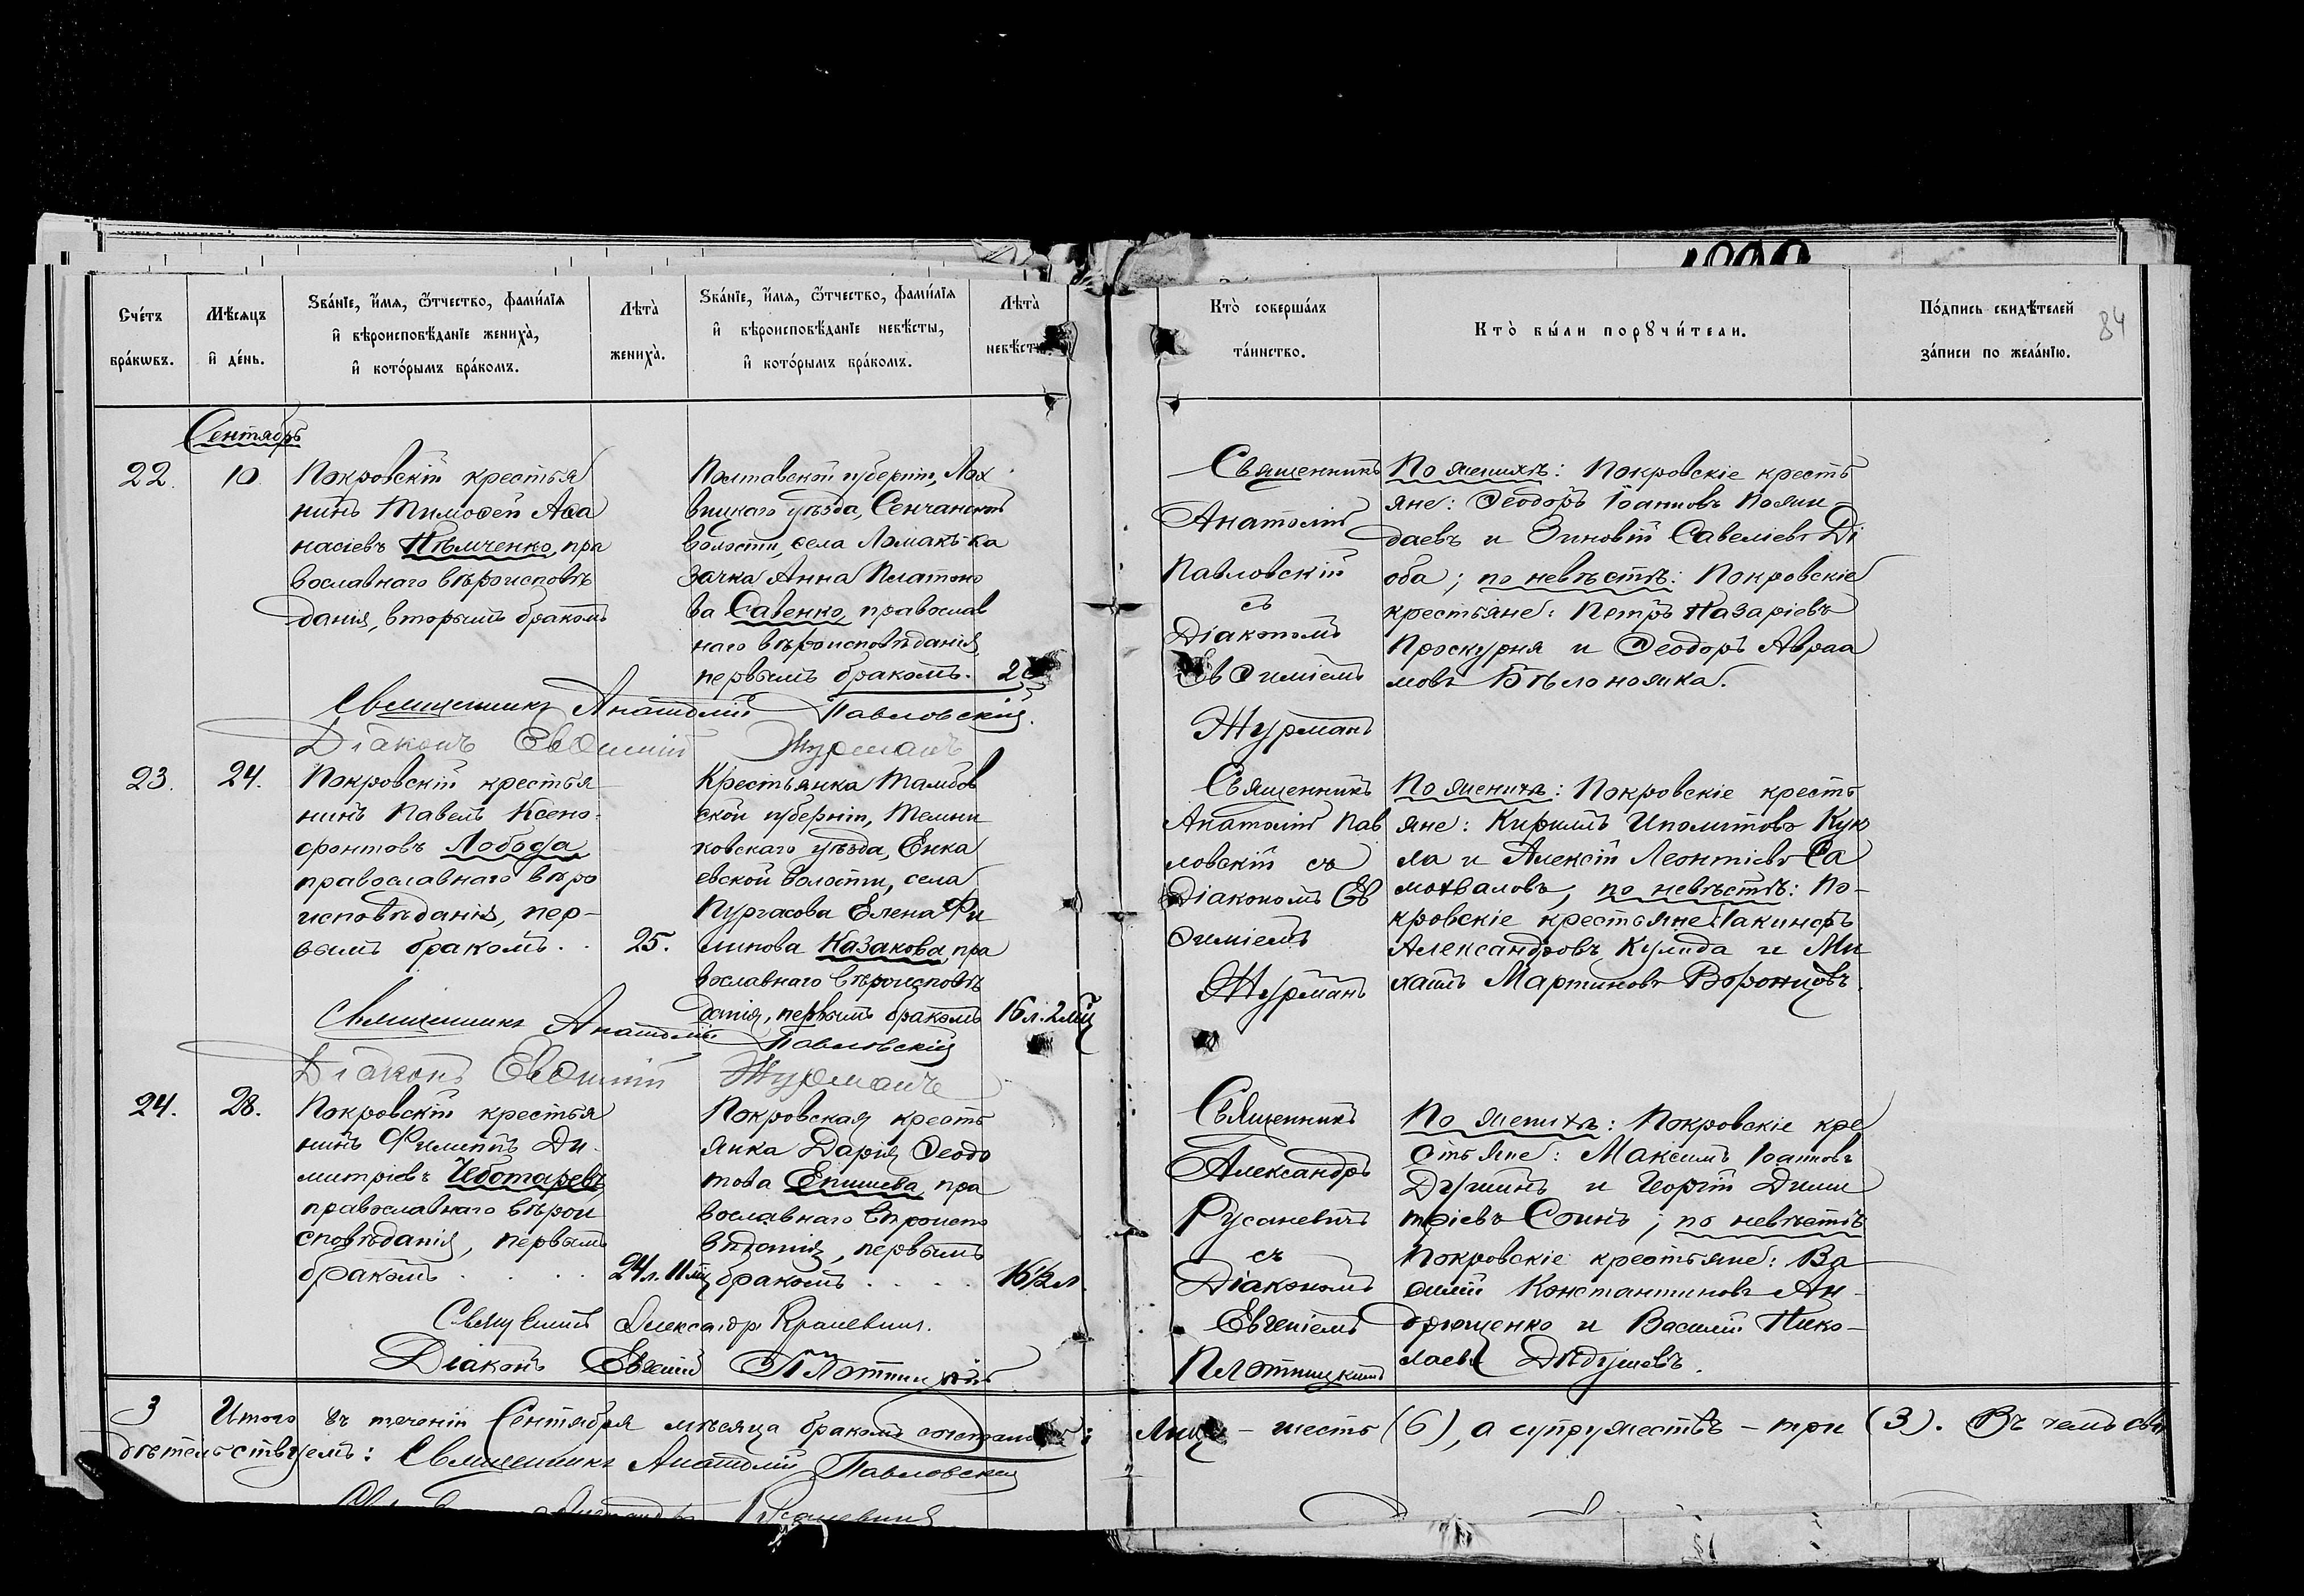 Счетъ браковъ.
Мѣсяцъ и день.
Званіе, имя, отчество, фамилія
и вѣроисповѣданіе жениха,
и которымъ бракомъ.
Лѣта
жениха.
Званіе, имя, отчество, фамилія
и вѣроисповѣданіе невѣсты,
и которымъ бракомъ.
Лѣта
невѣсты.
Кто совершалъ
таинство.
Кто были поручители.
Подпись свидѣтелей
записи по желанію.
84
Сентябрь
22.
10
Покровскій крестья
нинъ Тимоѳей Аѳа
насіевъ Нѣмченко, пра
вославнаго вѣроисповѣ
данія, вторымъ бракомъ
Полтавской губерніи, Лох
вицкаго уѣзда, Сенчанской
волости, села Ломакъ ка
зачка Анна Платоно
ва Савенко, православ
наго вѣроисповѣданія,
первымъ бракомъ.
Священникъ
Анатолій
Павловскій
съ
Діакономъ
Евѳиміемъ
Журманъ
По женихѣ: Покровскіе кресть
яне: Ѳеодоръ Іоанновъ
даевъ и Зиновій Савеліевъ Ді
оба; по невѣстѣ: Покровскіе
крестьяне: Петръ Назаріевъ
Проскурня и Ѳеодоръ Авраа
мовъ Бѣлоножка.
Священникъ Анатолій Павловскій.
Діаконъ Евѳимій Журманъ
23.
24.
Покровскій крестья
нинъ Павелъ Ксено-
фонтовъ Лобода
православнаго вѣро
исповѣданія, пер-
вымъ бракомъ. .
25.
Крестьянка Тамбов
ской губерніи, Темни
ковскаго уѣзда, Енка
евской волости, села
Пургасова Елена Фи
липова Казакова, пра
вославнаго вѣроисповѣ
данія, первымъ бракомъ
16 л. 2 мѣ
Священникъ
Анатолій Пав
ловскій съ
Діакономъ Ев
ѳиміемъ
Журманъ
По женихѣ: Покровскіе кресть
яне: Кириллъ Иполитовъ Кук
ла и Алексій Леонтіевъ Са
мохваловъ, по невѣстѣ: По-
кровскіе крестьяне: Іакинѳъ
Александровъ Кулида и Ми
хаилъ Мартиновъ Воронцовъ.
Священникъ Анатолій Павловскій
Діаконъ Евѳимій Журманъ
24.
28.
Покровскій крестья
нинъ Филиппъ Ди-
митріевъ Чеботаревъ,
православнаго вѣрои
сповѣданія, первымъ
бракомъ . . . .
24 л. 11 мѣ
Покровская кресть
янка Дарія Ѳеодо
това Епишева, пра
вославнаго вѣроиспо
вѣданія, первымъ
бракомъ . . . .
16 1/2 л.
Священникъ
Александръ
Русаневичъ
съ
Діакономъ
Евгеніемъ
Плотницкимъ
По женихѣ: Покровскіе кре
стьяне: Максимъ Іоанновъ
Душинъ и Георгій Дими
тріевъ Соинъ; по невѣстѣ
Покровскіе крестьяне: Ва
силій Константиновъ Ан-
дрющенко и Василій Нико-
лаевъ Дѣдушевъ.
Священникъ Александръ Русаневичъ.
Діаконъ Евгеній Плотницкій
3 Итого въ теченіи Сентября мѣсяца бракомъ сочетано: Лицъ – шесть (6), а супружествъ – три (3). Въ чемъ сви
дѣтельствуемъ: Священникъ Анатолій Павловскій
Русаневичъ